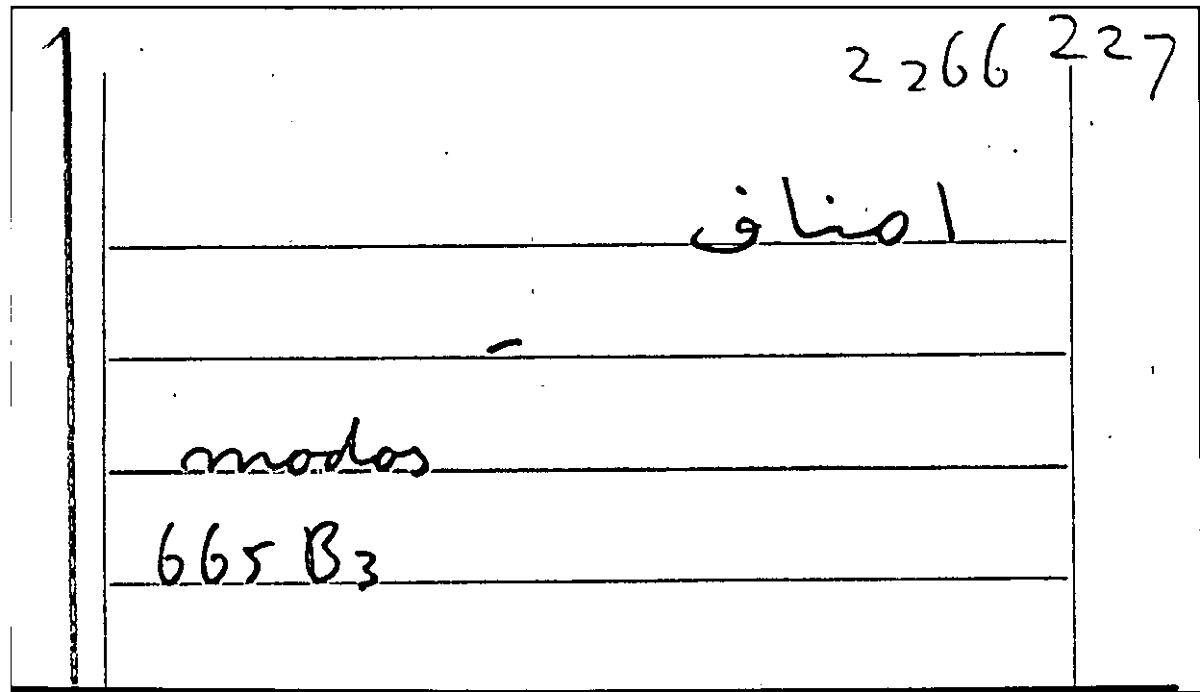 2266 227
اصناف
–
modos
665 B3